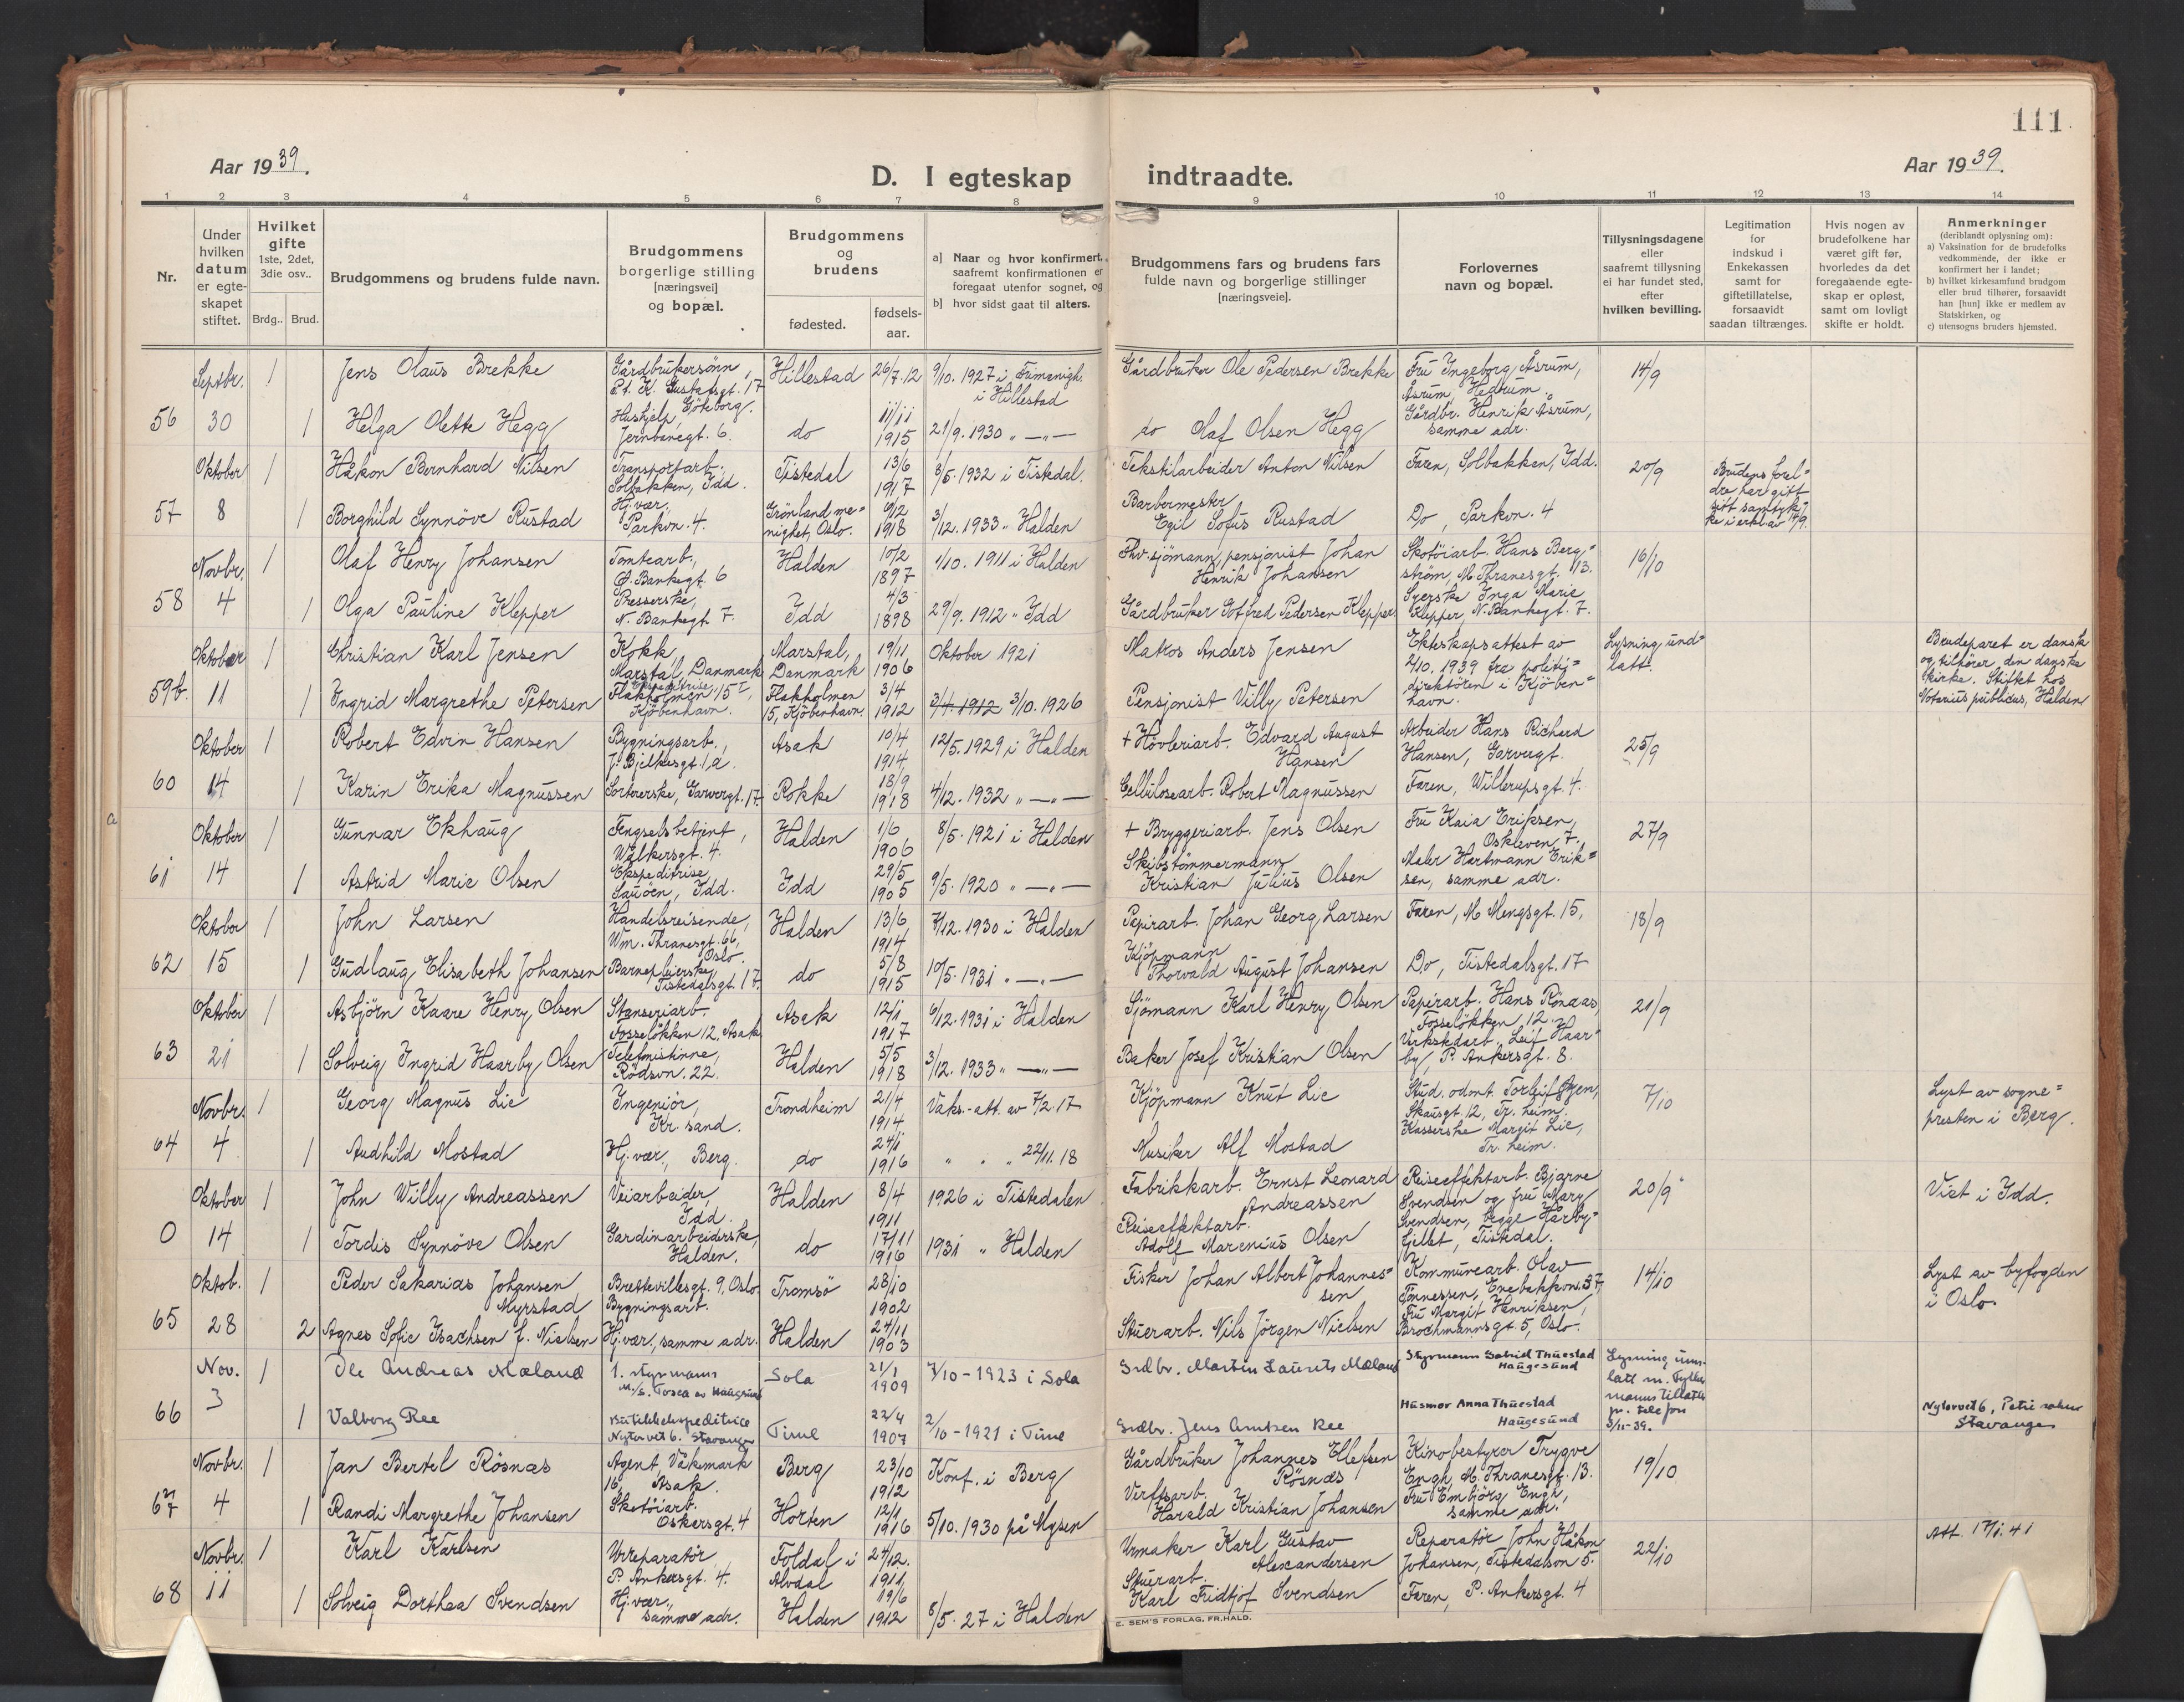 111.
Aar 1939.
D. I egteskap
indtraadte.
Aar 1939.
1 2 3 4 5 6 7 8 9 10 11 12 13 14
Nr.
Under hvilken datum er egteskapet stiftet.
Hvilket gifte 1ste, 2det, 3die osv..
Brdg.. Brud.
Brudgommens og brudens fulde navn.
Brudgommens borgerlige stilling [næringsvei] og bopæl.
Brudgommens og brudens
fødested.
fødsels-aar.
a] Naar og hvor konfirmert, saafremt konfirmationen er foregaat utenfor sognet, og
b] hvor sidst gaat til alters.
Brudgommens fars og brudens fars fulde navn og borgerlige stillinger [næringsveie].
Forlovernes navn og bopæl.
Tillysningsdagene eller saafremt tillysning ei har fundet sted, efter hvilken bevilling.
Legitimation for indskud i Enkekassen samt for giftetillatelse, forsaavidt saadan tiltrænges.
Hvis nogen av brudefolkene har været gift før, hvorledes da det foregaaende egteskap er opløst, samt om lovligt skifte er holdt.
Anmerkninger
(deriblandt oplysning om):
a) Vaksination for de brudefolks vedkommende, der ikke er konfirmert her i landet;
b) hvilket kirkesamfund brudgom eller brud tilhører, forsaavidt han [hun] ikke er medlem av Statskirken, og
c) utensogns bruders hjemsted.
Septbr. 1 Jens Olaus Brekke Gårdbrukersønn, P.t. K. Gustafsgt. 17 Göteborg. Hillestad 26/7.12 9/10. 1927 i i Hillestad Gårdbruker Ole Pedersen Brekke Fru Ingeborg Åsrum, Åsrum, Hedrum 14/9
56 30 1 Helga Olette Hegg Hushjelp, Jernbanegt. 6. do 11/11 1915 21/9. 1930 " —"— do Olaf Olsen Hegg Gårdbr. Henrik Åsrum, samme adr.
Oktober 1 Håkon Bernhard Nilsen Transportarb., Solbakken, Idd. Tistedal 13/6 1917 8/5. 1932 i Tistedal. Tekstilarbeider Anton Nilsen Faren, Solbakken, Idd. 20/9 Brudens foreldre har gitt sitt samtykke i erkl. av 14/9.
57 8 1 Borghild Synnöve Rustad Hj.vær., Parkvn. 4. Grönland menighet, Oslo. 9/12 1918 3/12. 1933 " Halden Barbermester Egil Sofus Rustad Do, Parkvn. 4
Novbr. 1 Olaf Henry Johansen Tomtearb., Ø. Bankegt. 6 Halden 10/2 1897 1/10. 1911 i Halden Fhv. sjömann, pensjonist Johan Henrik Johansen Skotöiarb. Hans Bergström, M. Thranesgt. 13. 16/10
58 4 1 Olga Pauline Klepper Presserske, N. Bankegt. 7. Idd 4/3 1898 29/9. 1912 " Idd Gårdbruker Gotfred Pedersen Klepper Syerske Inga Marie Klepper, N. Bankegt. 7.
Oktober 1 Christian Karl Jensen Kokk, Marstal, Danmark Marstal, Danmark 19/11 1906 Oktober 1921 Matros Anders Jensen Ekteskapsattest av 2/10. 1939 fra politidirektören i Kjöbenhavn. Lysning undlatt. Brudeparet er danske og tilhörer den danske kirke. Stiftet hos Notarius publicus, Halden
59b. 11 1 Ingrid Margrethe Petersen Ekspeditrise, Flakholmen 15 I, Kjöbenhavn. Flakholmen 15, Kjöbenhavn. 3/4 1912 3/4. 1912 3/10. 1926 Pensjonist Villy Petersen
Oktober 1 Robert Edvin Hansen Bygningsarb., J. Bjelkesgt. 1a. Asak 10/4 1914 12/5. 1929 i Halden + Hövleriarb. Edvard August Hansen Arbeider Hans Richard Hansen, Garvergt. 25/9
60 14 1 Karin Erika Magnussen Sortererske, Garvergt. 17 Rokke 18/9 1918 4/12. 1932 " —"— Cellulosearb. Robert Magnussen Faren, Willerupsgt. 4.
a
Oktober 1 Gunnar Ekhaug Fengselsbetjent, Walkersgt. 4. Halden 1/6 1906 8/5. 1921 i Halden + Bryggeriarb. Jens Olsen Fru Kaia Eriksen, Oskleven 7. 27/9
61 14 1 Astrid Marie Olsen Ekspeditrise, Sauöen, Idd. Idd 29/5 1905 9/5. 1920 " —"— Skibstömmermann Kristian Julius Olsen Maler Hartmann Eriksen, samme adr.
Oktober 1 John Larsen Handelsreisende, Wm. Thranesgt. 66, Oslo. Halden 13/6 1914 7/12. 1930 i Halden Papirarb. Johan Georg Larsen Faren, M. Mengsgt. 15, 18/9
62 15 1 Gudlaug Elisabeth Johansen Barnepleierske, Tistedalsgt. 17. do 5/8 1915 10/5. 1931 " —"— Kjöpmann Thorvald August Johansen Do, Tistedalsgt. 17
Oktober 1 Asbjörn Kaare Henry Olsen Stanseriarb. Fosselökken 12, Asak Asak 12/1 1917 6/12. 1931 i Halden Sjömann Karl Henry Olsen Papirarb. Hans Rönaas, Fosselökken 12. 21/9
63 21 1 Solveig Ingrid Haarby Olsen Telefonistinne, Rödsvn. 22. Halden 5/5 1918 3/12. 1933 " —"— Baker Josef Kristian Olsen Verkstedarb. Leif Haarby, P. Ankersgt. 8.
Novbr. 1 Georg Magnus Lie Ingeniör, Kr. sand. Trondheim 21/4 1914 Vaks.-att. av 7/2. 17 Kjöpmann Knut Lie Stud. odont. Torleif Skausgt. 12, Tr. heim. 7/10 Lyst av sognepresten i Berg.
64 4 1 Audhild Mostad Hj.vær., Berg. do 24/1 1916 " " " 22/11. 18 Musiker Alf Mostad Kasserske Margit Lie, Tr. heim.
Oktober 1 John Willy Andreassen Veiarbeider, Idd. Halden 8/4 1911 1926 i Tistedalen Fabrikkarb. Ernst Leonard Andreassen Reiseeffektarb. Bjarne Svendsen og fru Mary Svendsen, begge Haarbyfjellet, Tistedal. 20/9 Viet i Idd.
0 14 1 Tordis Synnöve Olsen Gardinarbeiderske, Halden. do 17/11 1916 1931 " Halden Reiseeffektarb. Adolf Marenius Olsen
Oktob. 1 Peder Sakarias Johansen Myrstad Brettevillesgt. 9, Oslo. Bygningsarb. Tromsö 28/10 1902 Fisker Johan Albert Johannessen Kommunearb. Olav Tönnessen, Enebakkvn. 37 14/10 Lyst av byfogden i Oslo.
65 28 2 Agnes Sofie Isachsen f. Nielsen Hj.vær., samme adr. Halden 24/11 1903 Stuerarb. Nils Jörgen Nielsen Fru Margit Henriksen, Brochmannsgt. 5, Oslo.
Nov. 1 Ole Andreas Mæland 1. styrmann M/S. Tosca av Haugesund Sola 21/1 1909 7/10 - 1923 i Sola Grdbr. Martin Laurits Mæland Styrmann Gabriel Thuestad Haugesund Lysning unnlatt m. Fylkesmanns tillatelse pr. telefon 3/11-39.
66 3 1 Valborg Ree Butikkekspeditrice Nytorvet 6. Stavanger Time 22/4 1907 2/10 - 1921 i Time Grdbr. Jens Arntsen Ree Husmor Anna Thuestad Haugesund Nytorvet 6, Petri sokn Stavanger
Novbr. 1 Jan Bertel Rösnæs Agent, Vakemark 16, Asak. Berg 23/10 1912 Konf. i Berg Gårdbruker Johannes Ellefsen Rösnæs Kinobestyrer Trygve Engh, M. Thranesgt. 13. 19/10
67 4 1 Randi Margrethe Johansen Skotöiarb. Oskersgt. 4 Horten 12/1 1916 5/10. 1930 på Mysen Verftsarb. Harald Kristian Johansen Fru Embjörg Engh, samme adr.
Novbr. 1 Karl Karlsen Urreparatör P. Ankersgt. 4. Foldal i Alvdal 24/12. 1911 Urmaker Karl Gustav Alexandersen Reparatör John Håkon Johansen, Tistedalsvn 5. 22/10 Att. 17/1. 41
68 11 1 Solveig Dorthea Svendsen Hj.vær., samme adr. Halden 19/6 1912 8/5. 27 i Halden Stuerarb. Karl Fridtjof Svendsen Faren, P. Ankersgt. 4
E. SEM'S FORLAG, FR.HALD.